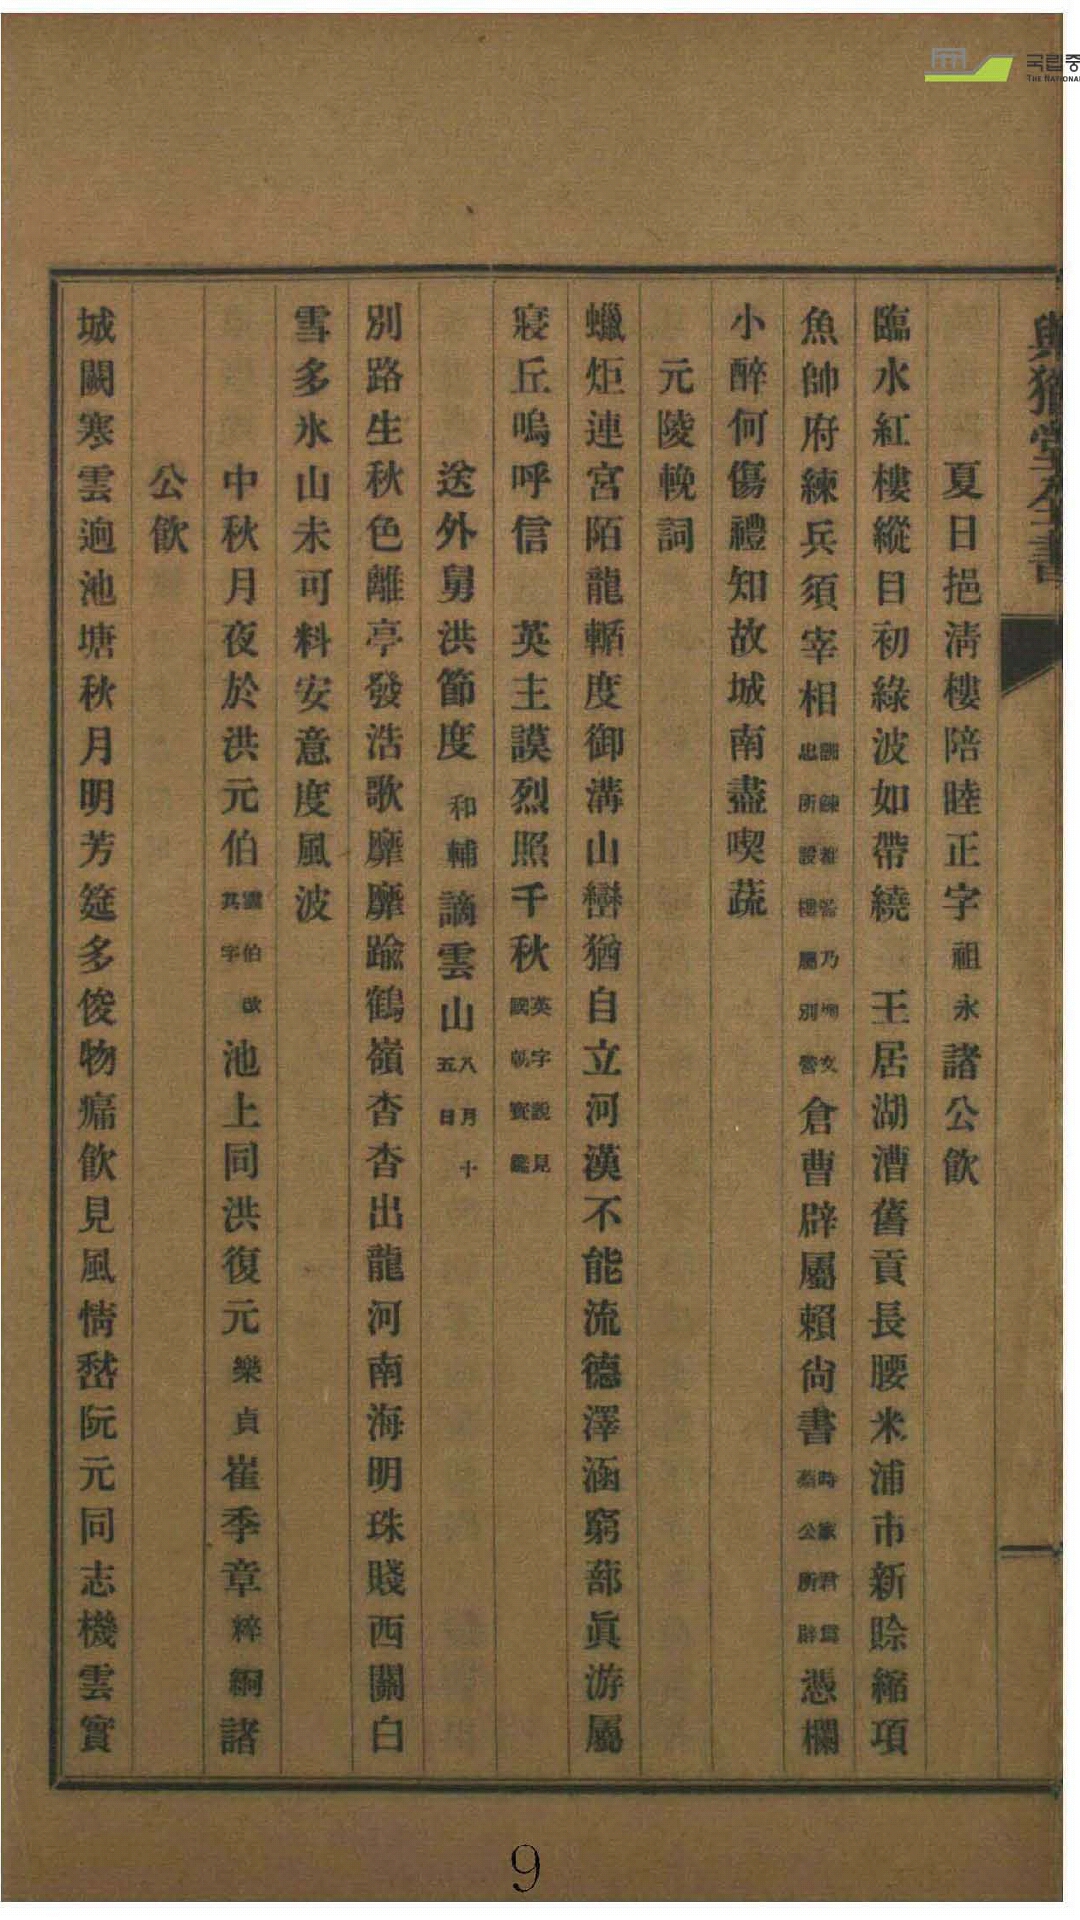 국립중
THE NATIONA
與猶堂全書
夏日挹淸樓陪睦正字祖永諸公飮
臨水紅樓縱目初綠波如帶繞 王居湖漕舊貢長腰米浦市新賒縮項
魚帥府練兵須宰相訓鍊都監乃 忠所設樓屬別營倉曹辟屬賴尙書時家君爲蔡公所辟憑欄
小醉何傷禮知故城南盡喫蔬
元陵輓詞
蠟炬連宮陌龍輴度御溝山巒猶自立河漢不能流德澤涵窮蔀眞游屬
寢丘嗚呼信 英主謨烈照千秋英字說見國朝寶鑑
送外舅洪節度和輔謫雲山八月十五日
別路生秋色離亭發浩歌靡靡踰鶴嶺杳杳出龍河南海明珠賤西關白
雪多氷山未可料安意度風波
中秋月夜於洪元伯 伯改其字池上同洪復元樂貞崔季章粹絅諸
公飮
城闕寒雲逈池塘秋月明芳筵多俊物痛飮見風情嵆阮元同志機雲實
9